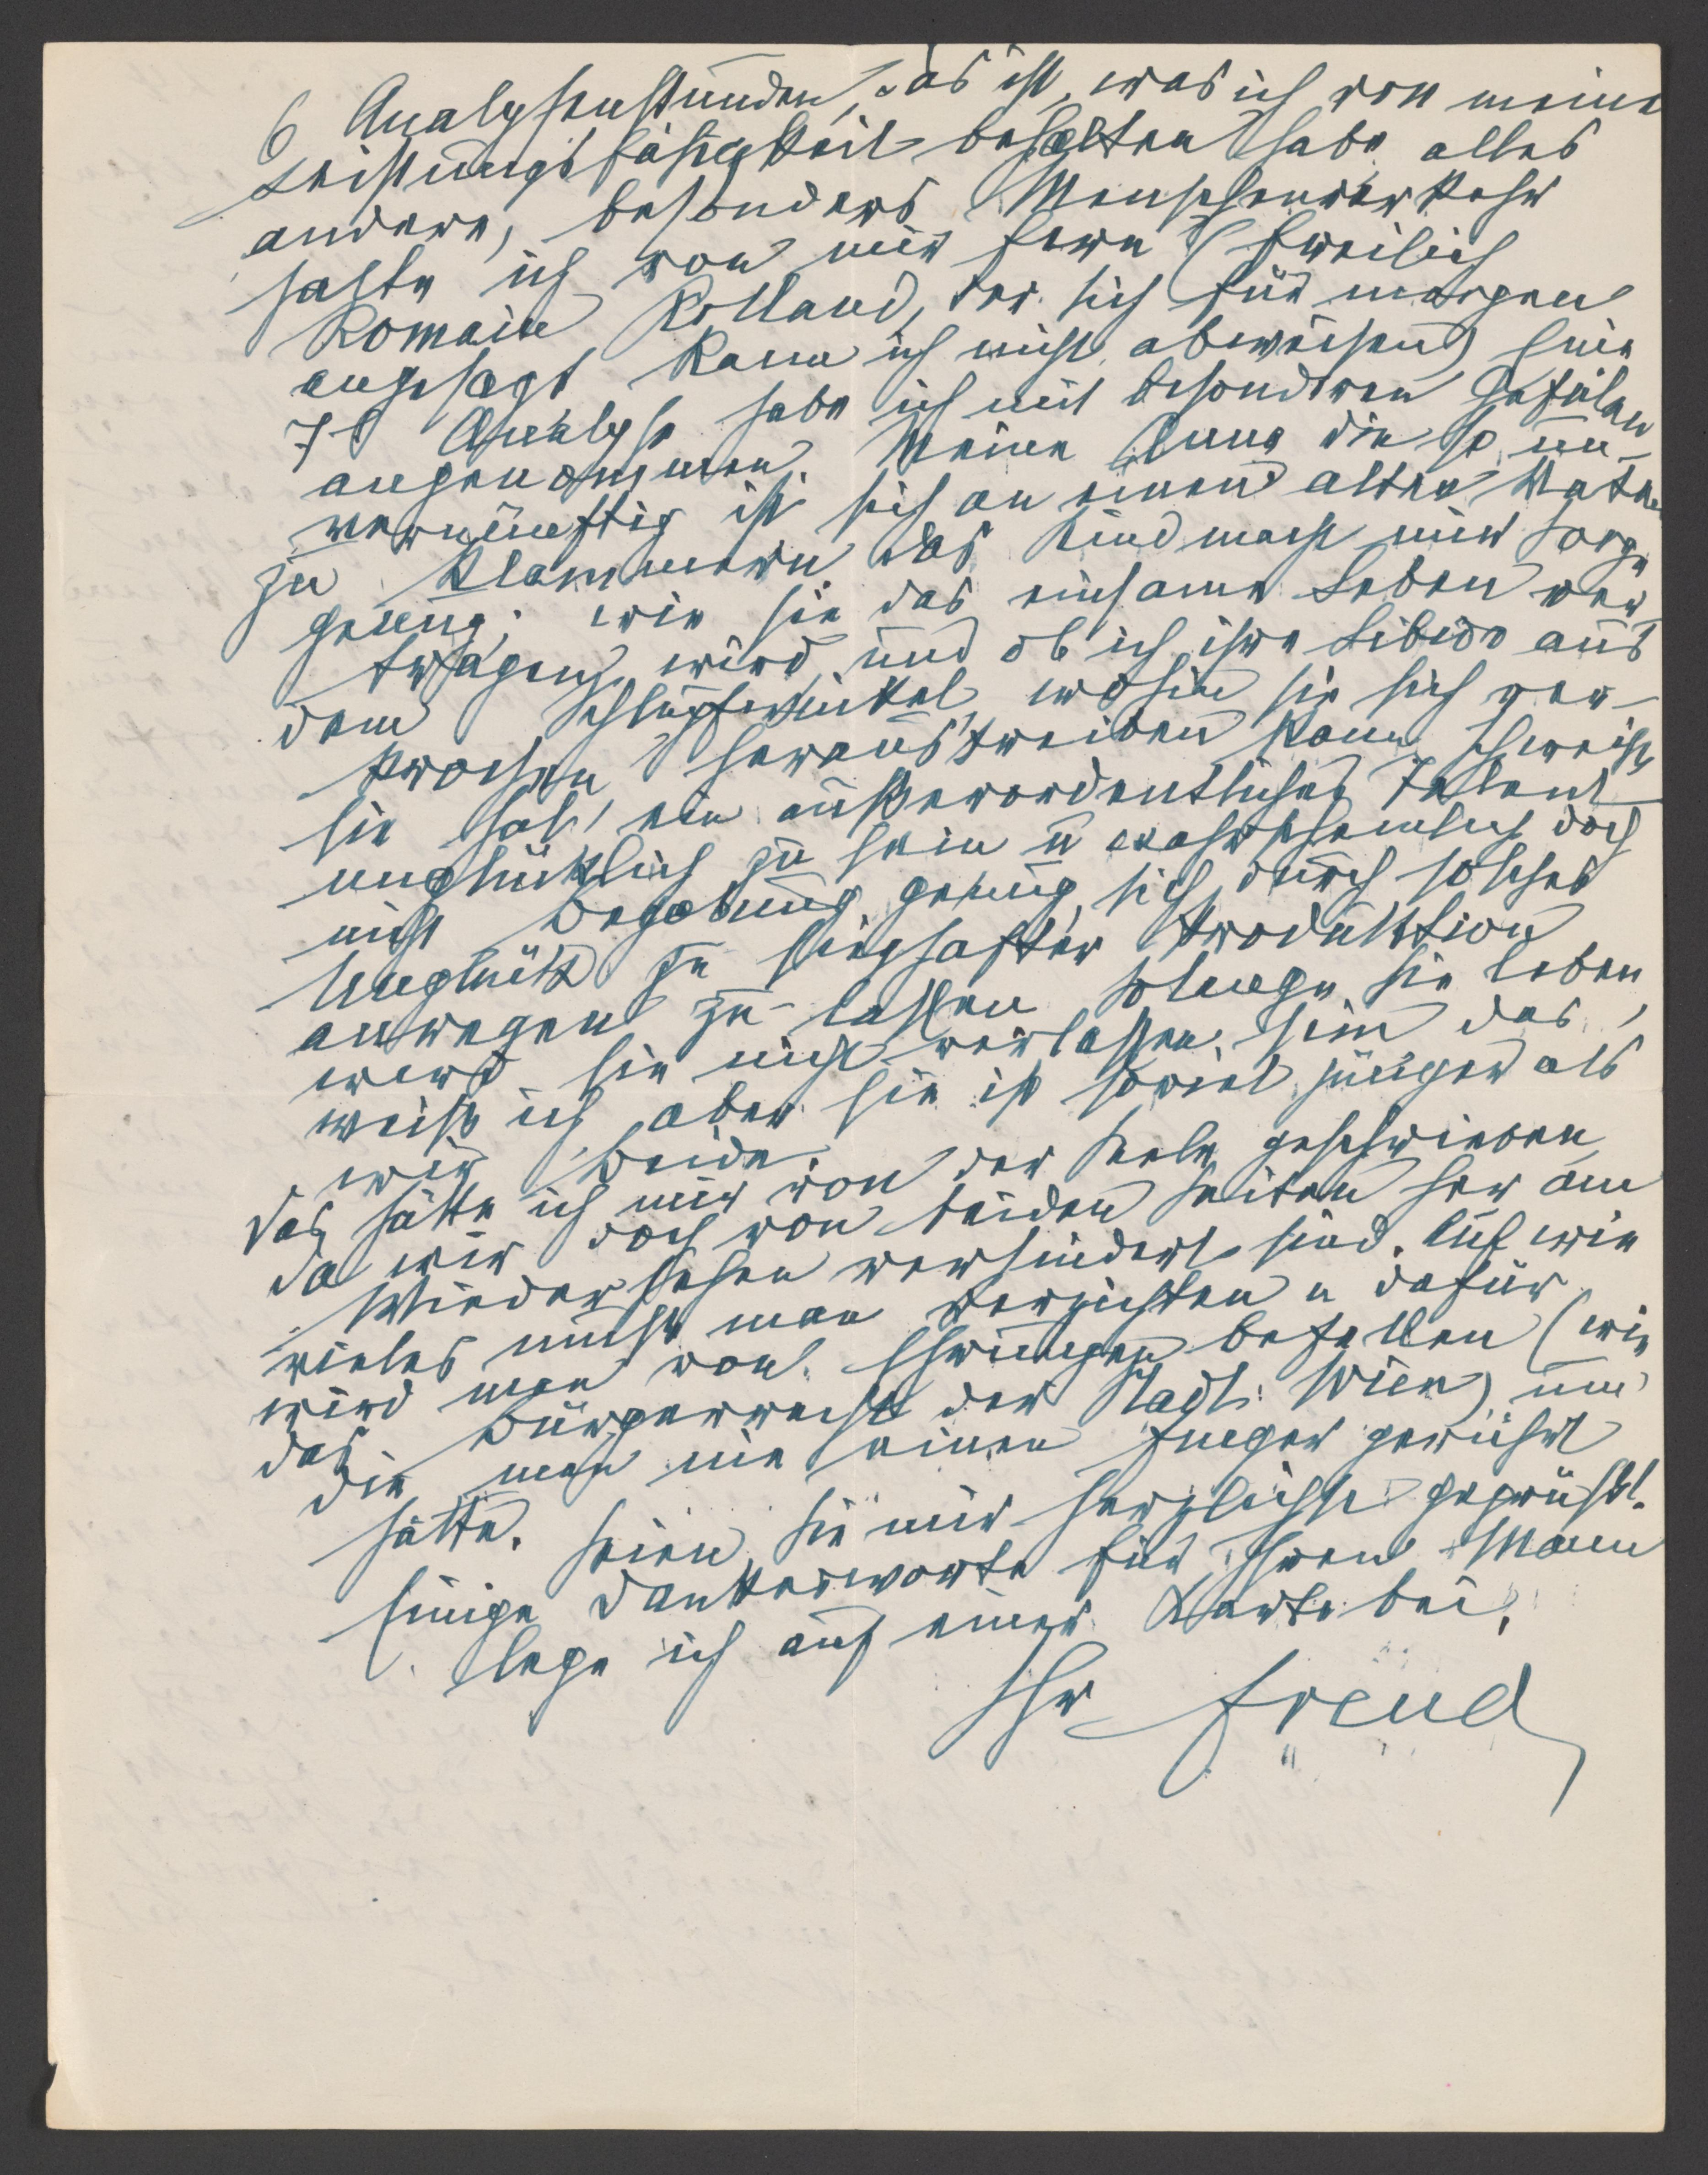 6 Analysenstunden, das ist, was ich von meine
Leistungsfähigkeit behalten habe alles
andere, besonders Menschenverkehr
halte ich von mir fern (freilich
Romain Rolland, der sich für morgen
angesagt kann ich nicht abweisen) Eine
7t Analyse habe ich mit besonderen Gefülen
angenommen. Meine Anna die so un-
vernünftig ist sich an einen alten Vater
zu klammern Das Kind macht mir Sorge
genug; wie sie das einsame Leben ver-
tragen wird und ob ich ihre Libido aus
dem Schlupfwinkel wohin sie sich ver-
krochen heraustreiben kann
sie hat ein außerordentliches Talent
unglücklich zu sein u wahrscheinlich doch
nicht Begabung genug sich durch solches
Unglück zu sieghafter Produktion
anregen zu lassen Solange Sie leben
werd Sie nicht verlassen sein das
weiß ich aber sie ist soviel jünger als
wir beide.
Das hätte ich mir von der Seele geschrieben
da wir doch von beiden Seiten her am
Wiedersehen verhindert sind. Auf wie
vieles muß man verzichten u dafür
wird man von Ehrungen befallen (wie
das Bürgerrecht der Stadt Wien) um
die man nie einen Finger gerührt
hätte. Seien Sie mir herzlichst gegrüßt.
Einige Dankesworte für Ihren Mann
lege ich auf einer Karte bei.
Ihr Freud